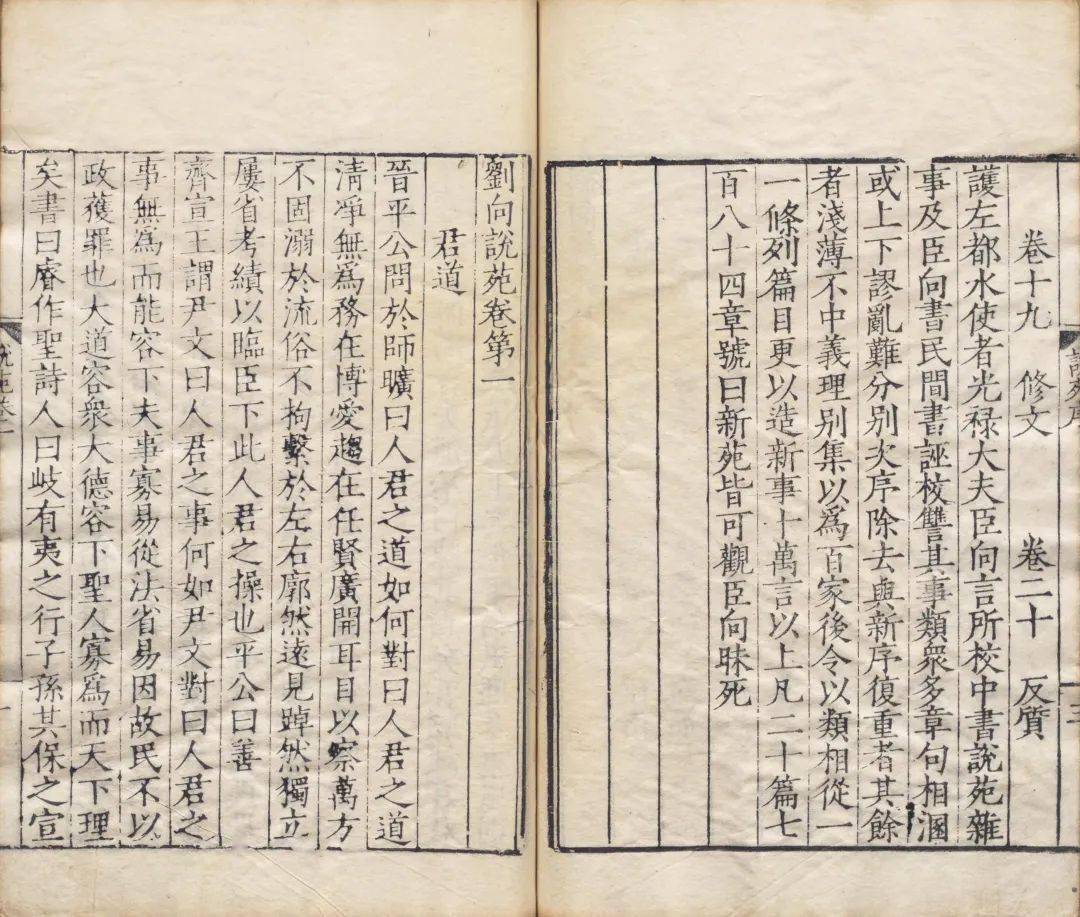 卷十九 修文 卷二十 反質
護左都水使者光禄大夫臣向言所校中書說苑雜
事及臣向書民間書誣校讐其事類衆多章句相溷
或上下謬亂難分别次序除去與新序復重者其餘
者淺薄不中義理别集以爲百家後令以類相從一
一條列篇目更以造新事十萬言以上凡二十篇七
百八十四章號曰新苑皆可觀臣向昧死
劉向說苑卷第一
君道
晉平公問於師曠曰人君之道如何對曰人君之道
清凈無爲務在博愛趨在任賢廣開耳目以察萬方
不固溺於流俗不拘繫於左右廓然遠見踔然獨立
屢省考績以臨臣下此人君之操也平公曰善
齊宣王謂尹文曰人君之事何如尹文對曰人君之
事無爲而能容下夫事寡易從法省易因故民不以
政獲罪也大道容衆大德容下聖人寡爲而天下理
矣書曰睿作聖詩人曰岐有夷之行子孫其保之宣